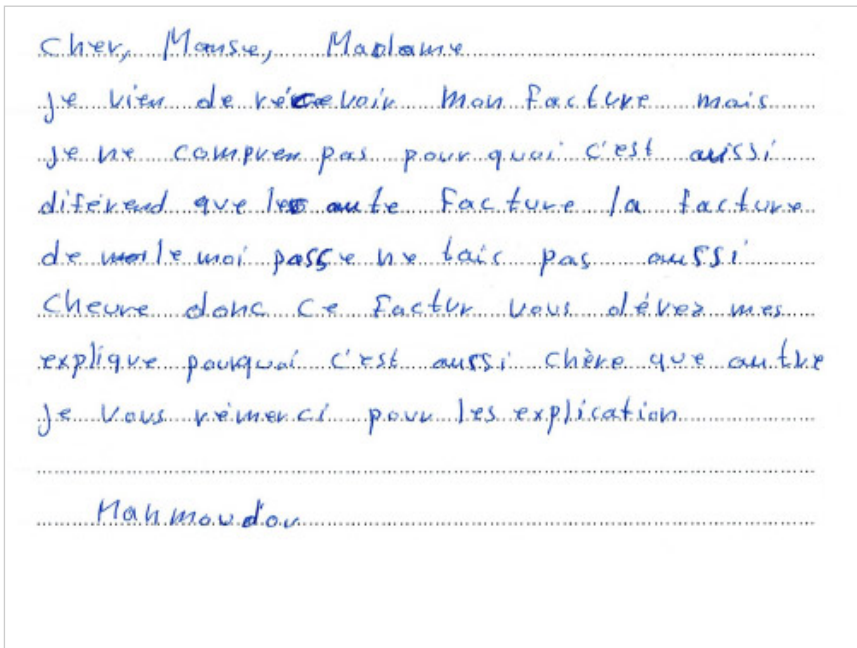 Cher, Monsie, Madame
je vien de récevoir mon facture mais
je ne compren pas pour quoi c'est aussi
diférend que les aute facture la facture
de le moi passe ne tais pas aussi
cheure donc ce factur vous dévez mes
explique pourquoi c'est aussi chère que autre
je vous rémerci pour les explication
Mahmoudou